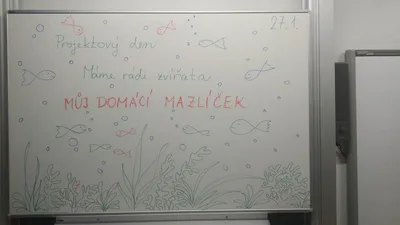 27.1.
Projektový den
Máme rádi zvířata
MŮJ DOMÁCÍ MAZLÍČEK